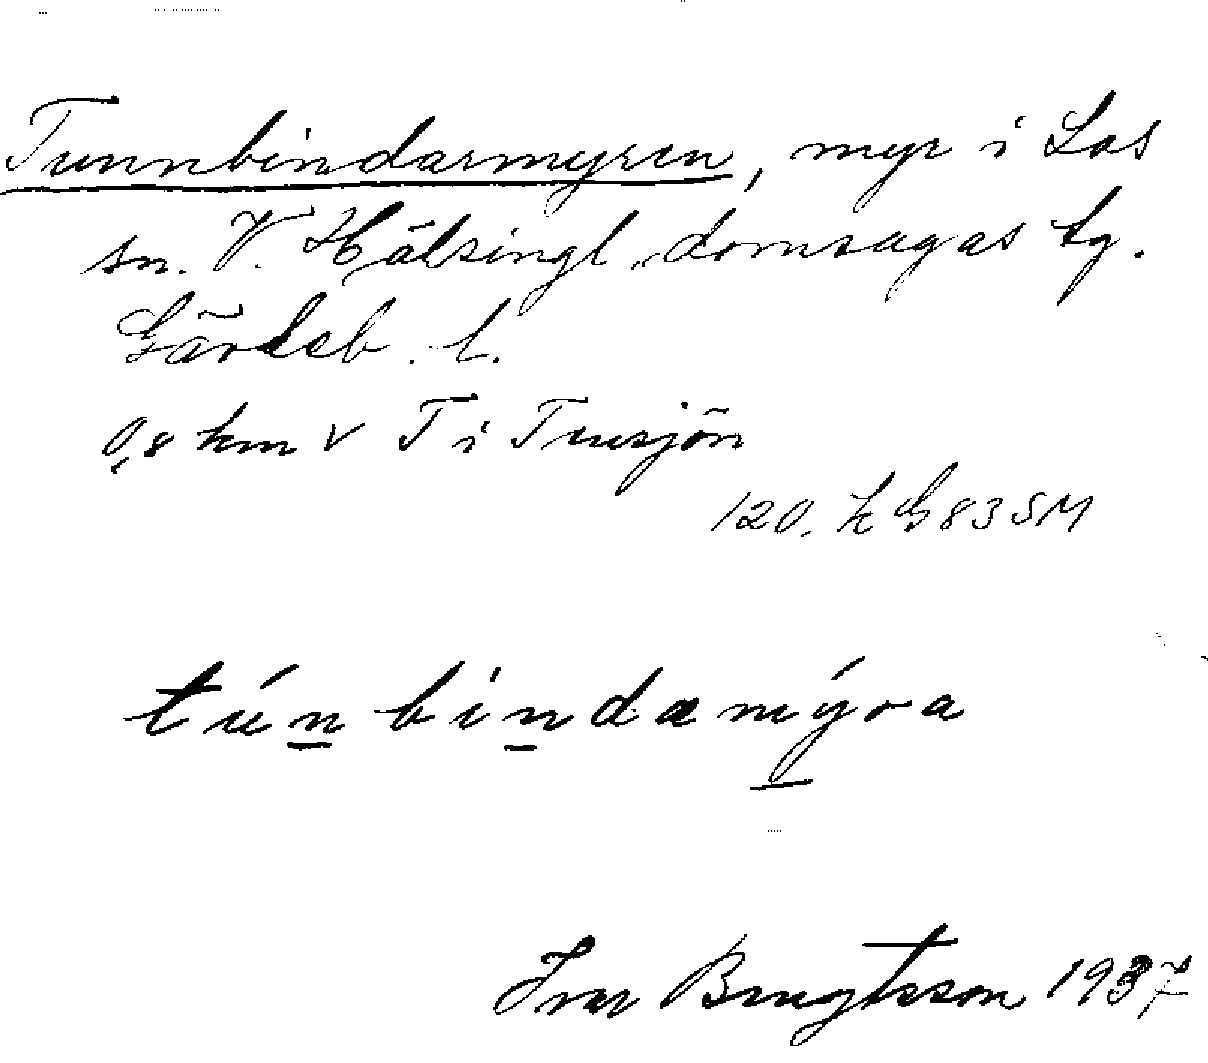 Tunnbindarmyren, myr i Los
sn. V. Hälsingl. domsagas tg.
Gävleb. l.
0,8 km V T i Tunsjön
120. K G 83 SM
túnbindamýra
Ivar Bengtsson 1937